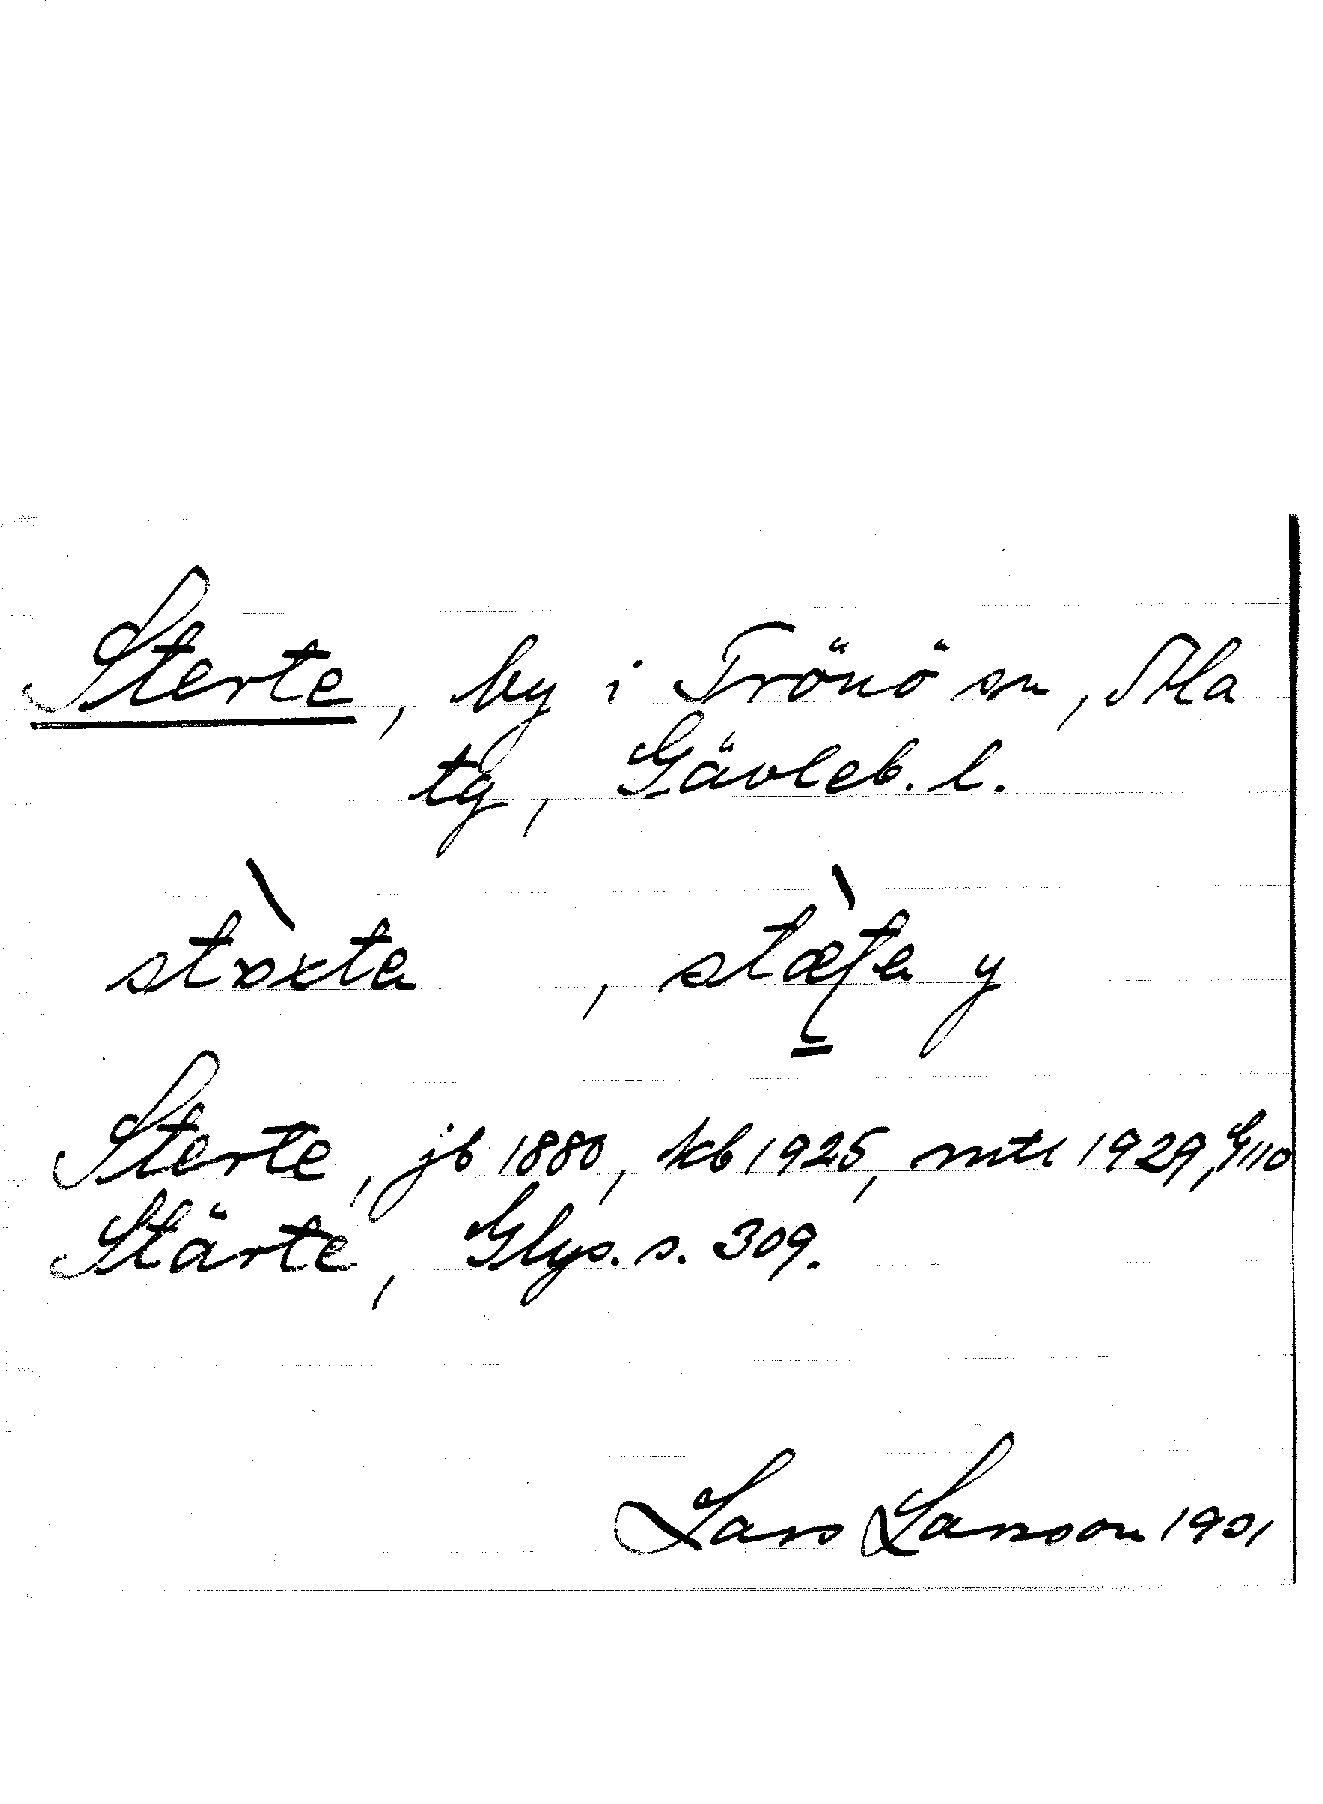 Sterte, by i Trönö sn, Ala
tg, Gävleb. l.
y
Sterte, jb 1880, kb 1925, mtl 1929, G110
Stärte, Glys. s. 309.
Lars Larsson 1901